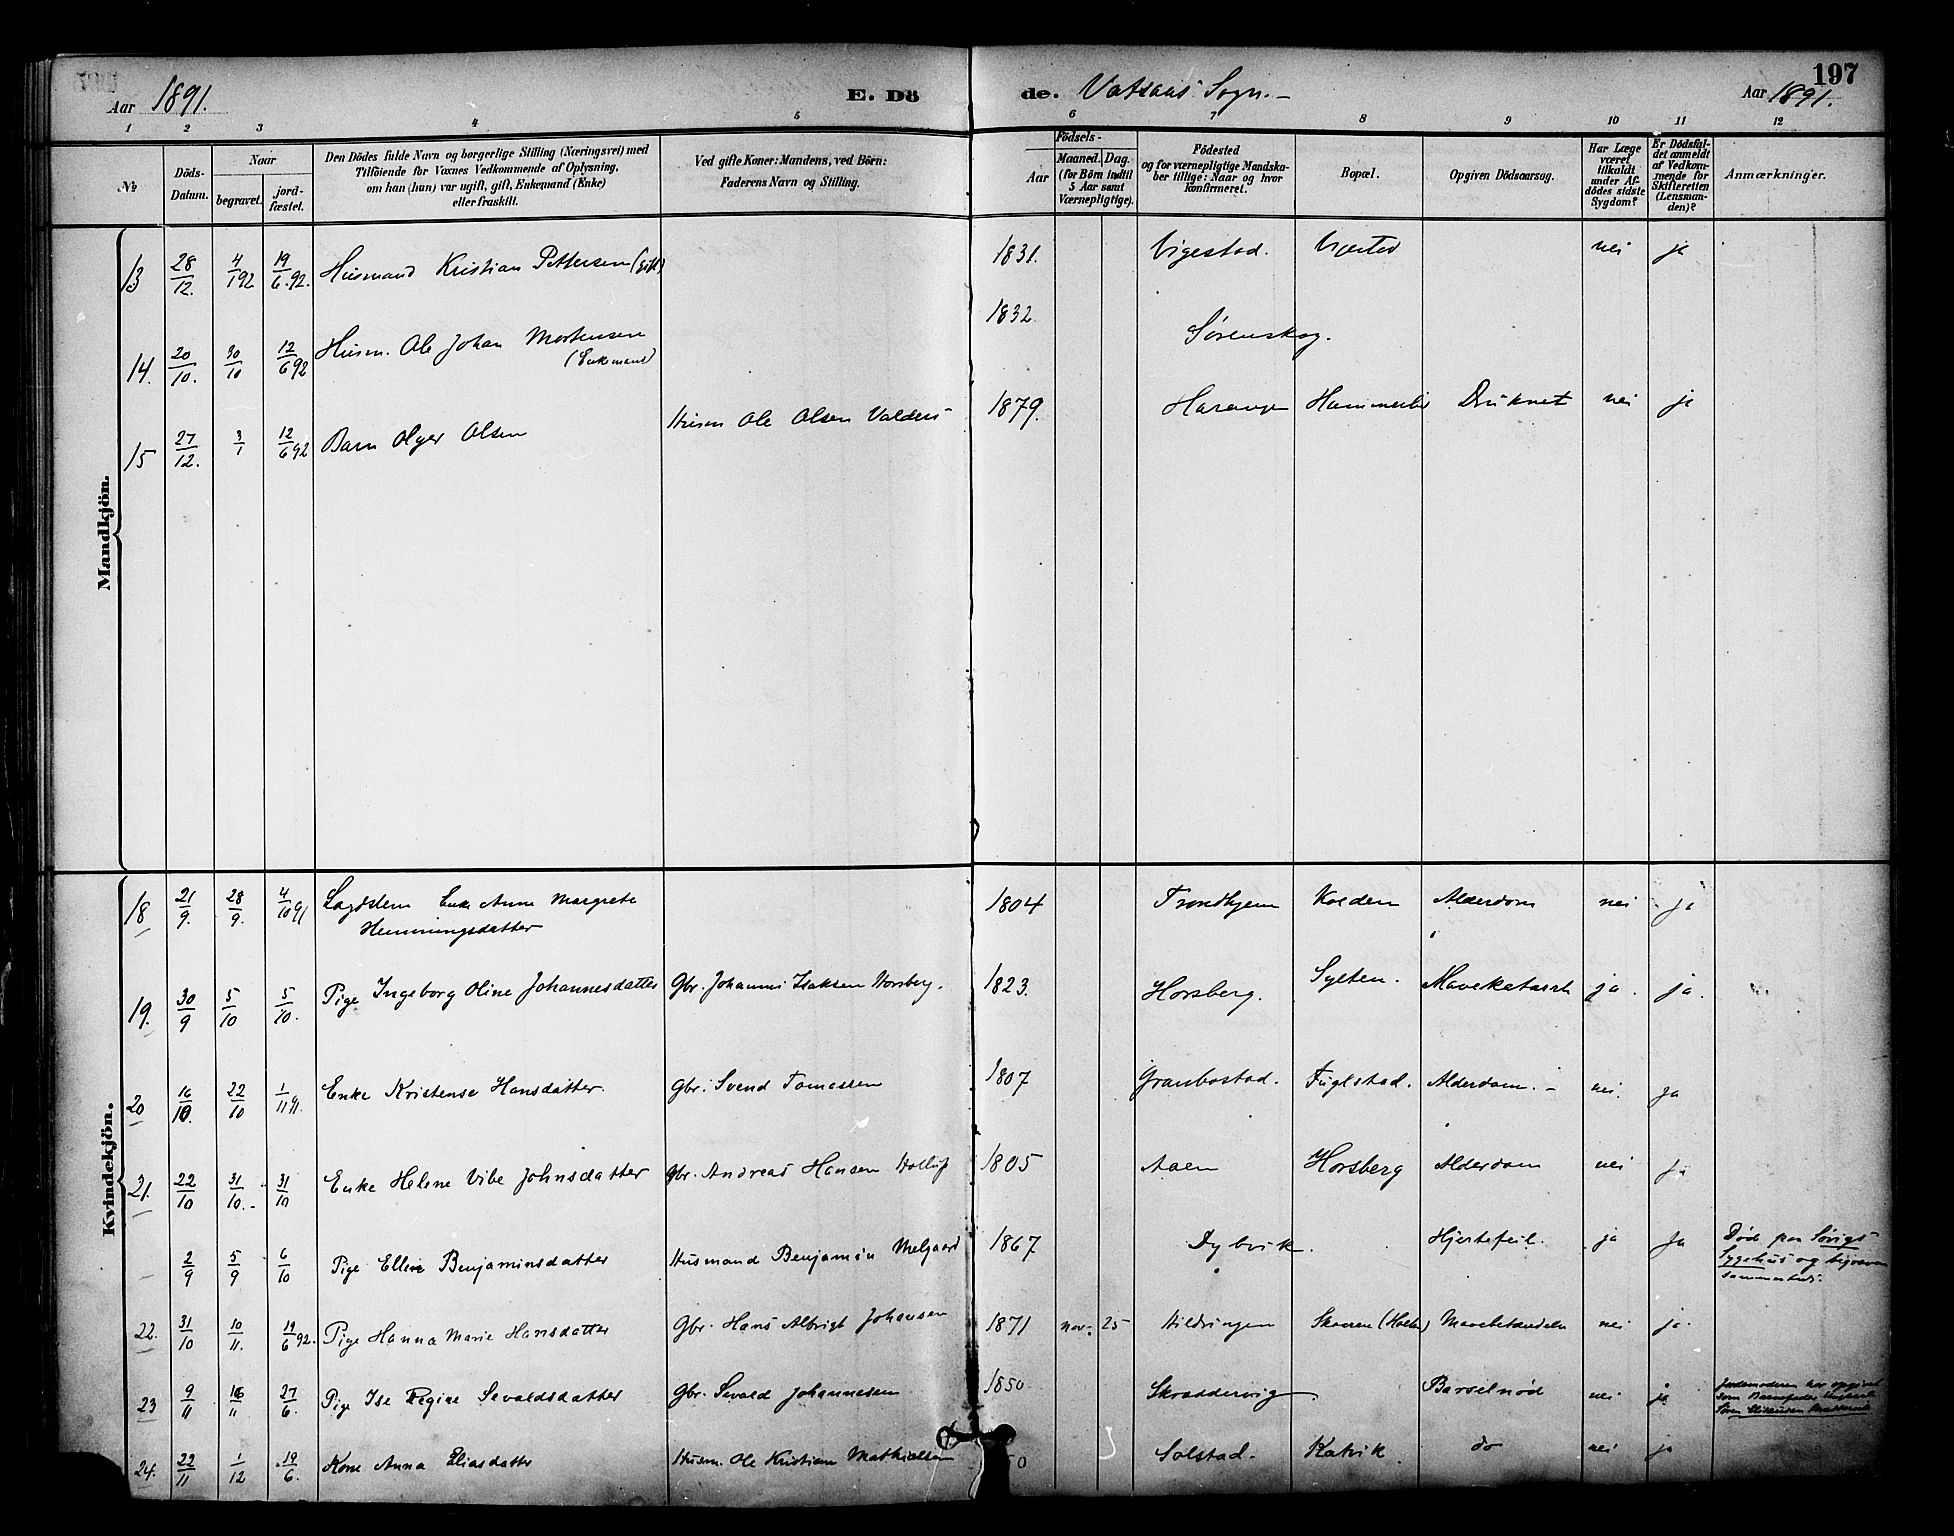 197
Aar 1891. E. Dö de. Vatsaas Sogn. Aar 1891.
1 2 3 4 5 6 7 8 9 10 11 12
№
Döds-
Datum.
Naar
begravet.
jord-
fæstet.
Den Dödes fulde Navn og borgerlige Stilling (Næringsvei) med
Tilföiende for Voxnes Vedkommende af Oplysning,
om han (hun) var ugift, gift, Enkemand (Enke)
eller fraskilt.
Ved gifte Koner: Mandens, ved Börn:
Faderens Navn og Stilling.
Födsels-
Aar
Maaned. Dag.
(for Börn indtil
5 Aar samt
Værnepligtige).
Födested
og for værnepligtige Mandska-
ber tillige: Naar og hvor
konfirmeret.
Bopæl.
Opgiven Dödsaarsag.
Har Læge
været
tilkaldt
under Af-
dödes sidste
Sygdom?
Er Dödsfal-
det anmeldt
af Vedkom-
mende for
Skifteretten
(Lensman-
den)?
Anmærkninger.
Mandkjön.
13 28/12. 4/1 92 19/6. 92. Husmand Kristian Pettersen (gift) 1831. Vigestad. nei ja
14. 20/10. 30/10 12/6 92 Husm. Ole Johan Mortensen 1832. Sørenskog.
(Enkemand)
15 27/12. 3/1 12/6 92 Barn Olger Olsen Husm Ole Olsen Valders 1879. Druknet nei ja
Kvindekjön.
18 21/9. 28/9. 4/10 91 Lagdslem Enke Anne Margrete 1804 Trondhjem Kolden Alderdom nei ja
Hemmingsdatter
19. 30/9 5/10 5/10. Pige Ingeborg Oline Johannesdatter Gbr. Johannes Isaksen Horsberg. 1823. Horsberg. Sylten. Mavekatarrh ja. ja.
20 16/10. 22/10 1/11 91. Enke Kristense Hansdatter. Gbr. Svend Tomassen 1807 Granbostad. Fuglstad. Alderdom. - nei. ja
21. 22/10 31/10.- 31/10 Enke Helene Vibe Johnsdatter Gbr. Andreas Hansen 1805 Aaen Horsberg Alderdom nei ja
2/9 5/9 6/10 Pige Elline Benjaminsdatter Husmand Benjamin Melgaard 1867 Dybvik. Hjertefeil. ja ja Død paa Søvigs
Sygehus og begraven
sammesteds.
22. 31/10 10/11. 19/6 92. Pige Hanna Marie Hansdatter Gbr. Hans Albrigt Johansen 1871 nov. 25 Hildringen nei ja.
23 9/11 16/11 27/6. Pige Ise Regine Sevaldsdatter Gbr. Sevald Johannesen 1850 Skraddervig Barselnød nei ja Jordemoderen har opgivet
som Barnefader
24. 22/11 1/12 19/6. Kone Anna Eliasdatter Husm. Ole Kristian Mathiassen 50 Solstad. Kalvik do nei ja